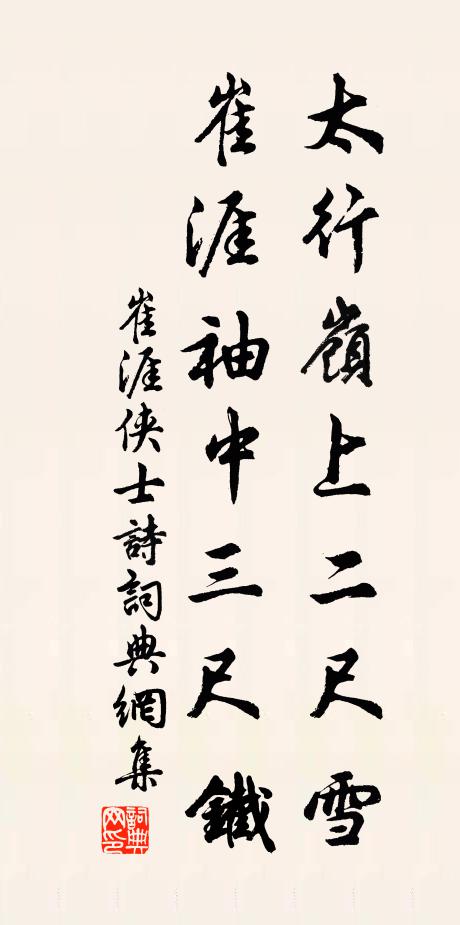 太行嶺上二尺雪
崔涯袖中三尺鐵
崔涯俠士詩詞典網集
詞典网印